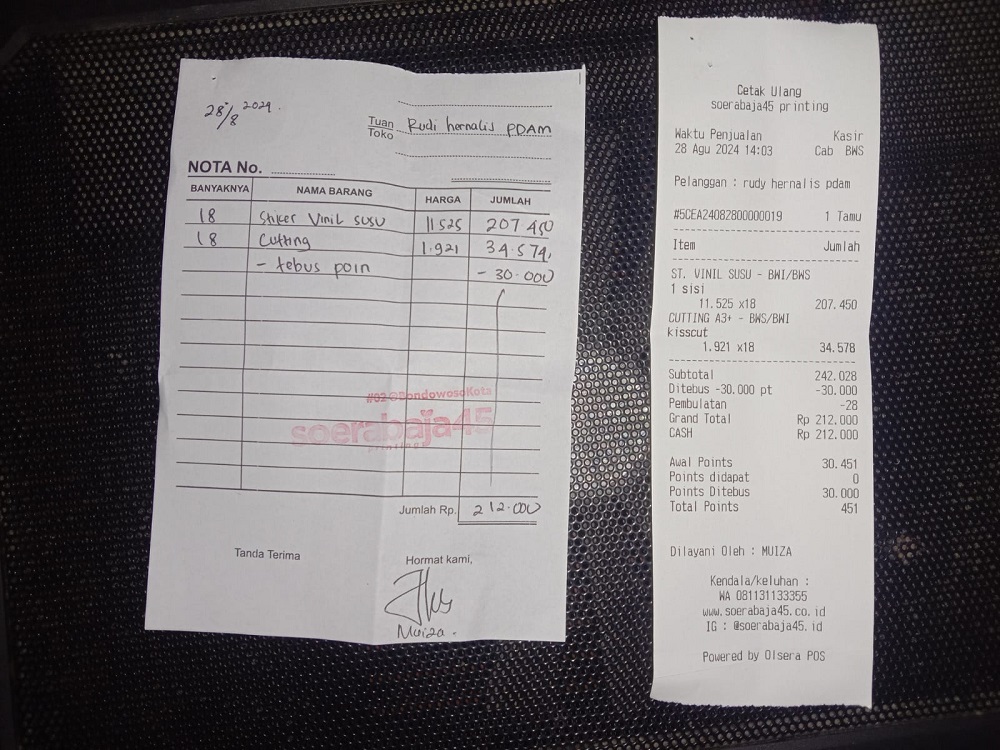 28/8 2024.
Tuan
Toko
Rudi hernalis PDAM
NOTA No.
BANYAKNYA NAMA BARANG HARGA JUMLAH
18 Stiker Vinil susu 11525 207.450
18 Cutting 1.921 34.574,
- tebus poin - 30.000
#02@BondowosoKota
soerabaja45
printing
Jumlah Rp. 212.000
Tanda Terima Hormat kami,
Muiza.
Cetak Ulang
soerabaja45 printing
Waktu Penjualan Kasir
28 Agu 2024 14:03 Cab BWS
Pelanggan : rudy hernalis pdam
#5CEA24082800000019 1 Tamu
Item Jumlah
ST. VINIL SUSU - BWI/BWS
1 sisi
11.525 x18 207.450
CUTTING A3+ - BWS/BWI
kisscut
1.921 x18 34.578
Subtotal 242.028
Ditebus -30.000 pt -30.000
Pembulatan -28
Grand Total Rp 212.000
CASH Rp 212.000
Awal Points 30.451
Points didapat 0
Points Ditebus 30.000
Total Points 451
Dilayani Oleh : MUIZA
Kendala/keluhan :
WA 081131133355
www.soerabaja45.co.id
IG : @soerabaja45.id
Powered by Olsera POS